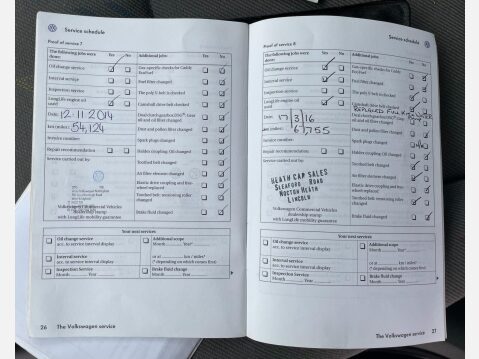 Service schedule
Proof of service 7
The following jobs were done: Yes No Additional jobs Yes No
Oil change service
Gas-specific checks for Caddy EcoFuel
Interval service
Fuel filter changed
Inspection service
The poly V-belt is checked
LongLife engine oil used
Camshaft drive belt checked
Date: 12.11.2014
Dual clutch gearbox (DSG®): Gear oil and oil filter changed
km (miles): 54,124
Dust and pollen filter changed
Service number:
Spark plugs changed
Repair recommendation
Haldex coupling: Oil changed
Service carried out by
Toothed belt changed
Air filter element changed
Elastic drive coupling and free-wheel replaced
Toothed belt tensioning roller changed
Volkswagen Commercial Vehicles
dealership stamp
with LongLife mobility guarantee
Brake fluid changed
Your next services
Oil change service
acc. to service interval display
Additional scope
Month Year*
Interval service
acc. to service interval display
or at km / miles*
(* depending on which comes first)
Inspection Service
Month Year
Brake fluid change
Month Year
26 The Volkswagen service
Service schedule
Proof of service 8
The following jobs were done: Yes No Additional jobs Yes No
Oil change service
Gas-specific checks for Caddy EcoFuel
Interval service
Fuel filter changed
Inspection service
The poly V-belt is checked
LongLife engine oil used
Camshaft drive belt checked
Date: 17/3/16
Dual clutch gearbox (DSG®): Gear oil and oil filter changed
km (miles): 61755
Dust and pollen filter changed
Service number:
Spark plugs changed
Repair recommendation
Haldex coupling: Oil changed
Service carried out by
Toothed belt changed
HEATH CAR SALES
SLEAFORD ROAD
NOCTON HEATH
LINCOLN
Air filter element changed
Elastic drive coupling and free-wheel replaced
Toothed belt tensioning roller changed
Volkswagen Commercial Vehicles
dealership stamp
with LongLife mobility guarantee
Brake fluid changed
Your next services
Oil change service
acc. to service interval display
Additional scope
Month Year*
Interval service
acc. to service interval display
or at km / miles*
(* depending on which comes first)
Inspection Service
Month Year
Brake fluid change
Month Year
The Volkswagen service 27